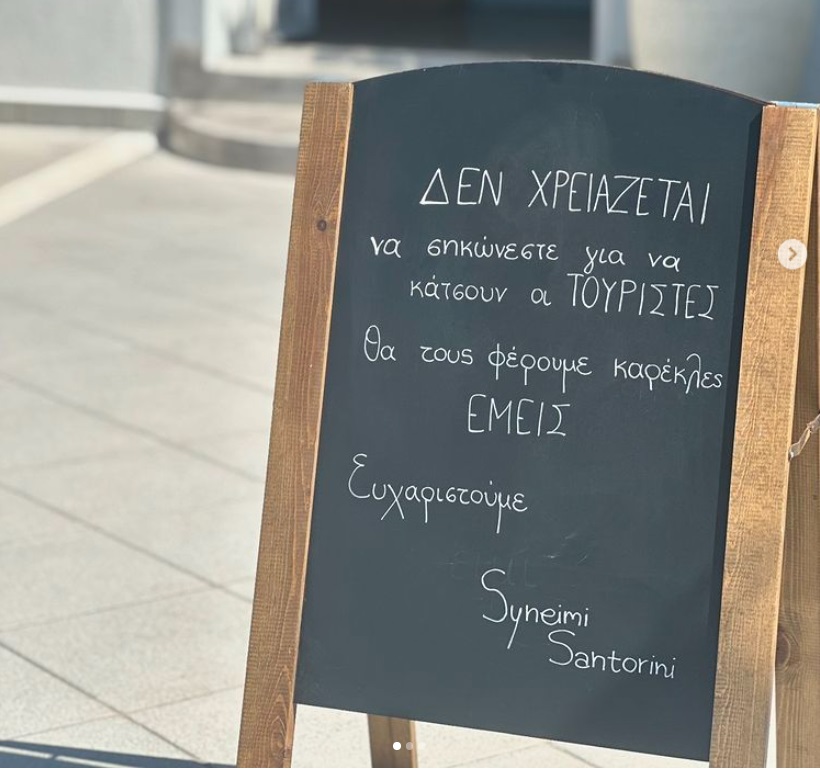 ΔΕΝ ΧΡΕΙΑΖΕΤΑΙ
να σηκώνεστε για να
κάτσουν οι ΤΟΥΡΙΣΤΕΣ
Θα τους φέρουμε καρέκλες
ΕΜΕΙΣ
Ευχαριστούμε
Syneimi
Santorini